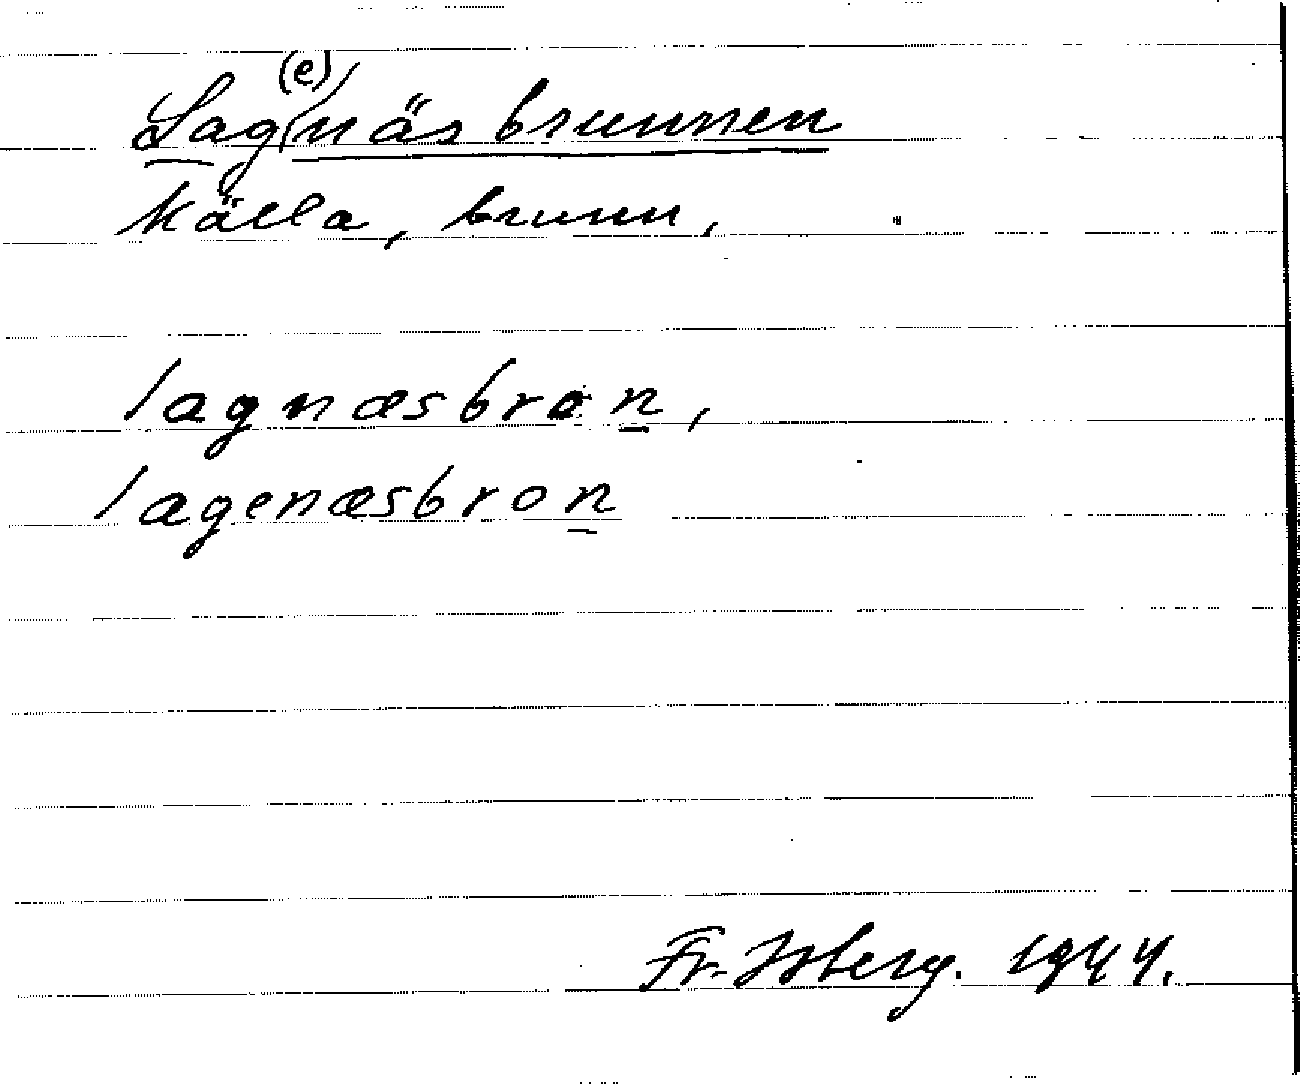 Lag(e)näsbrunnen
källa, brunn,
lagnæsbron,
lagenæsbron
Fr. Isberg. 1944.